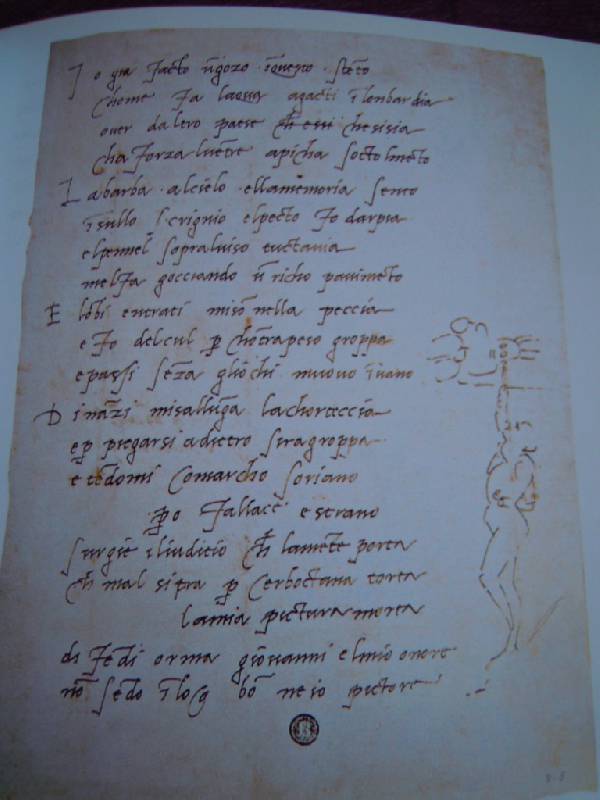 I o gia facto ñgozo ĩquesto stẽto
chome fa lacqua agacti ĩlombardia
over dalero paese ch̃ essi chesisia
cha forza lvẽtre apicha soctolmẽto
L abarba alcielo ellamemoria sento
ĩsullo scrignio elpecto fo darpia
elpennel sopralviso tuctavia
melfa gocciando ũ richo pavimẽto
E lõbi entrati misõ nella peccia
e fo delcul p̱ chõtrapeso groppa
epassi sẽza gliochi muovo ĩvano
D inãzi misallũga lachorteccia
ep̱ piegarsi adietro siragroppa
e tẽdomi comarcho soriano
p̱o fallace e strano
surgie iliuditio ch̃ lamẽte porta
ch̃ mal sipra p̱ cerboctana torta
lamia pictura morta
difẽdi orma giovanni elmio onore
nõ sẽdo ĩloco bõ neio pictore